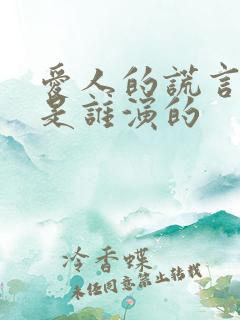 愛人的謊言
是誰演的
冷香蝶
未經同意禁止轉載